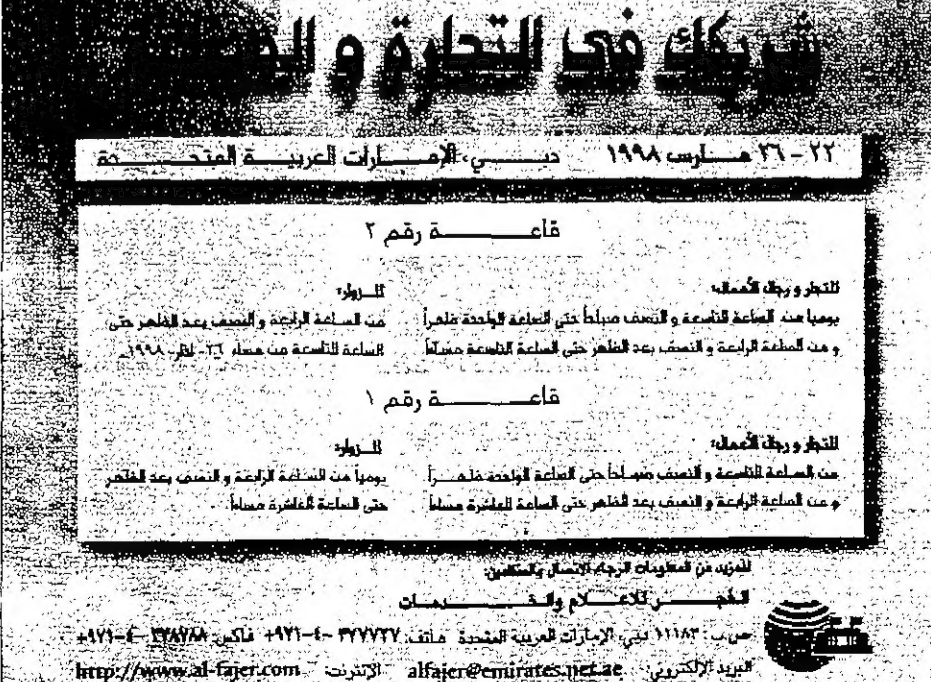 شريكك في التجارة و
٢٢ – ٢٦ مـارس ١٩٩٨ دبـي، الإمـارات العربيـة المتحـدة
قاعـة رقم ٢
للتجار و رجال الأعمال:
يوميا من الساعة التاسعة و النصف صباحاً حتى الساعة الواحدة ظهراً
و من الساعة الرابعة و النصف بعد الظهر حتى الساعة التاسعة مساءً
للـزوار:
من الساعة الرابعة و النصف بعد الظهر حتى
الساعة التاسعة من مساء ٢٦ ١٩٩٨
قاعـة رقم ١
للتجار و رجال الأعمال:
من الساعة التاسعة و النصف صباحاً حتى الساعة الواحدة ظهـراً
و من الساعة الرابعة و النصف بعد الظهر حتى الساعة العاشرة مساءً
للـزوار:
يومياً من الساعة الرابعة و النصف بعد الظهر
حتى الساعة العاشرة مساءً
للمزيد من المعلومات الرجاء الاتصال بالمنظمين:
الفجـر للاعـلام والخـدمـات
ص.ب: ١١١٨٣ دبي، الإمارات العربية المتحدة هاتف: ٣٧٧٧٢٧ –٤–٩٧١+ فاكس: ٣٧٨٧٨٨ –٤–٩٧١+
البريد الالكتروني: alfajer@emirates.net.ae الإنترنت: http://www.al-fajer.com